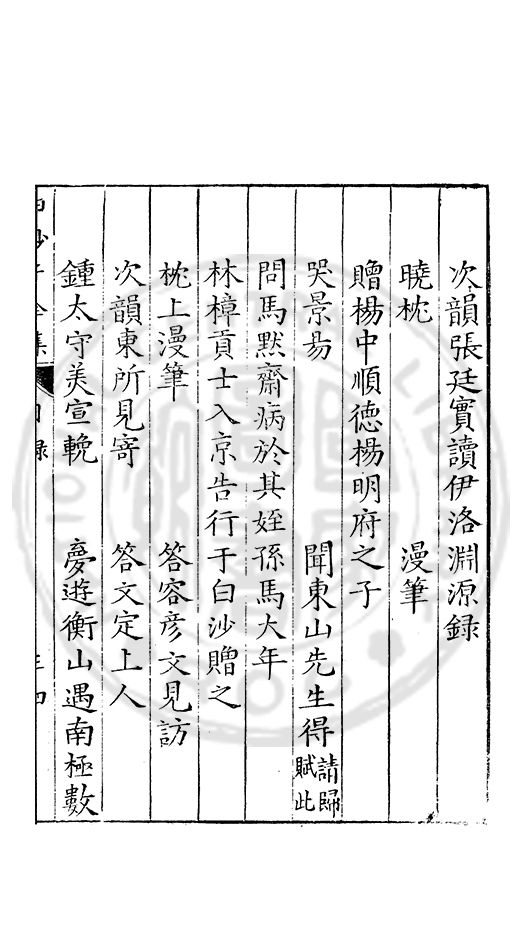 次韻張廷實讀伊洛淵源録
曉枕　漫筆
贈楊中順德楊明府之子
哭景昜　聞東山先生得請歸賦此
問馬默齋病於其姪孫馬大年
林樟貢士入京告行于白沙贈之
枕上漫筆　答容彦文見訪
次韻東所見寄　答文定上人
鍾太守美宣輓　夢遊衡山遇南極數